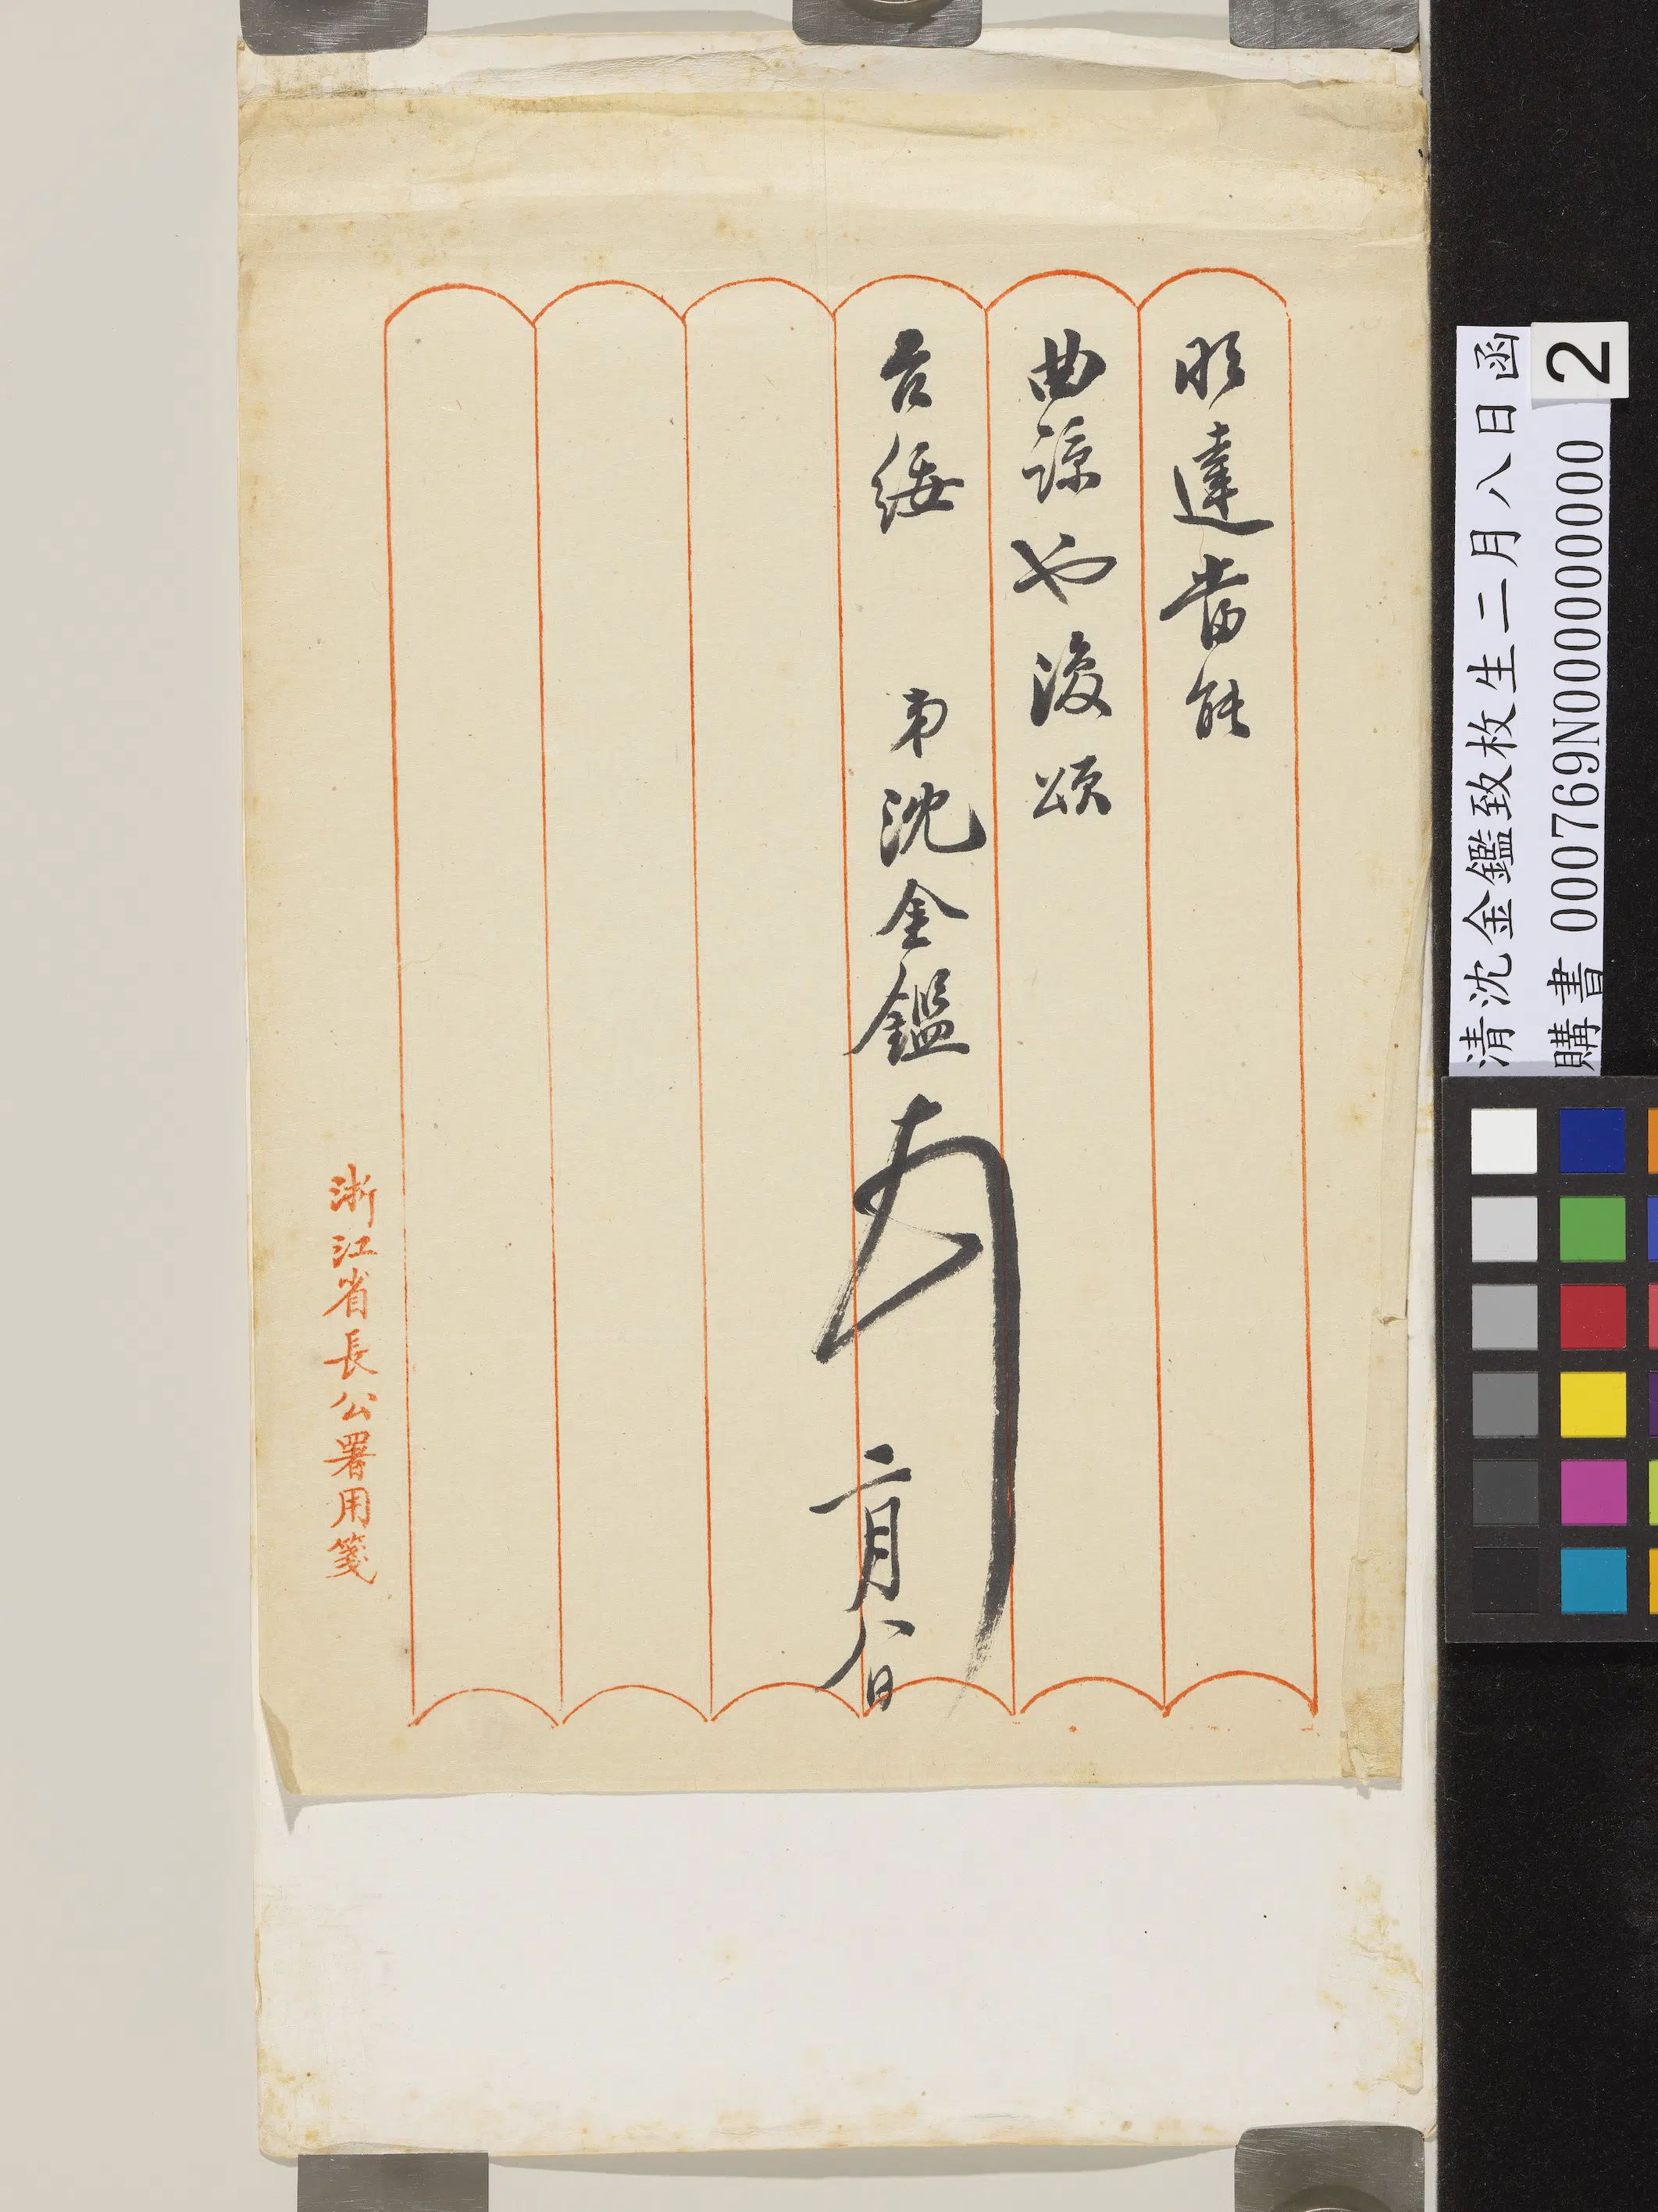 明達當能
曲諒也復頌
台綏 弟沈金鑑 二月八日
浙江省長公署用箋
清沈金鑑致枚生二月八日函
購書 000769N000000000
2